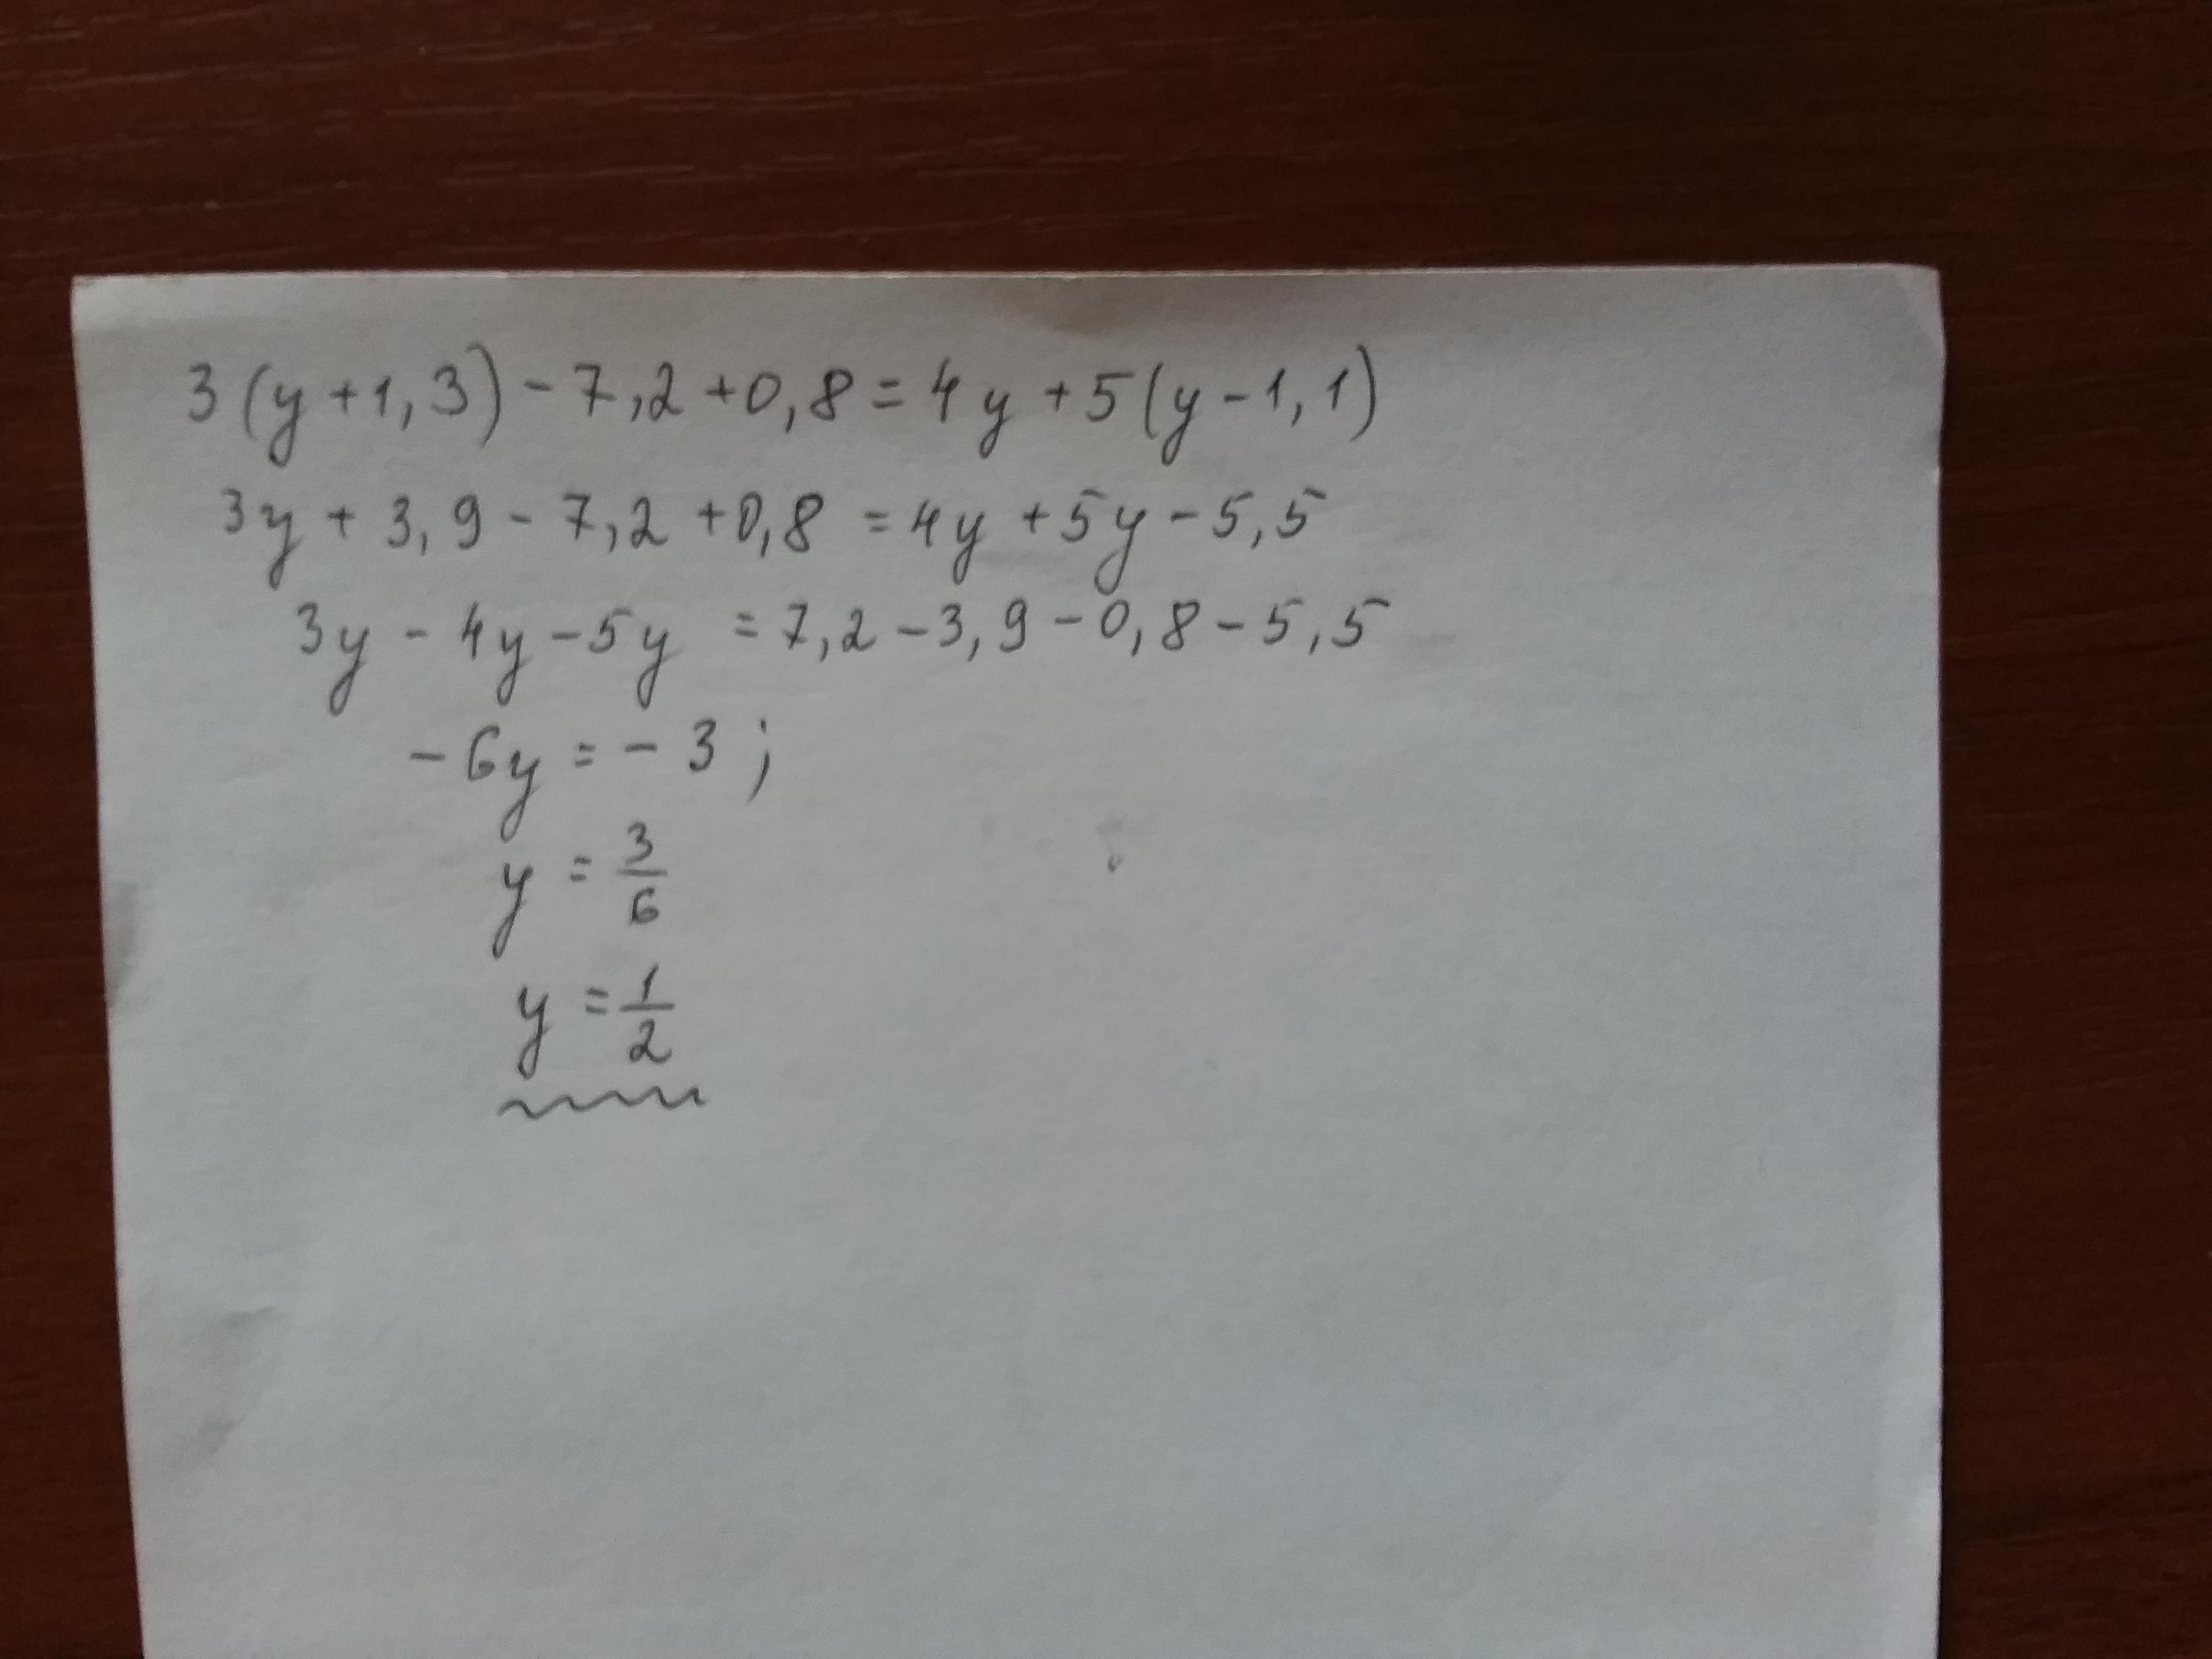 3(y+1,3)-7,2+0,8=4y+5(y-1,1)
3y+3,9-7,2+0,8=4y+5y-5,5
3y-4y-5y=7,2-3,9-0,8-5,5
-6y=-3;
y=3/6
y=1/2